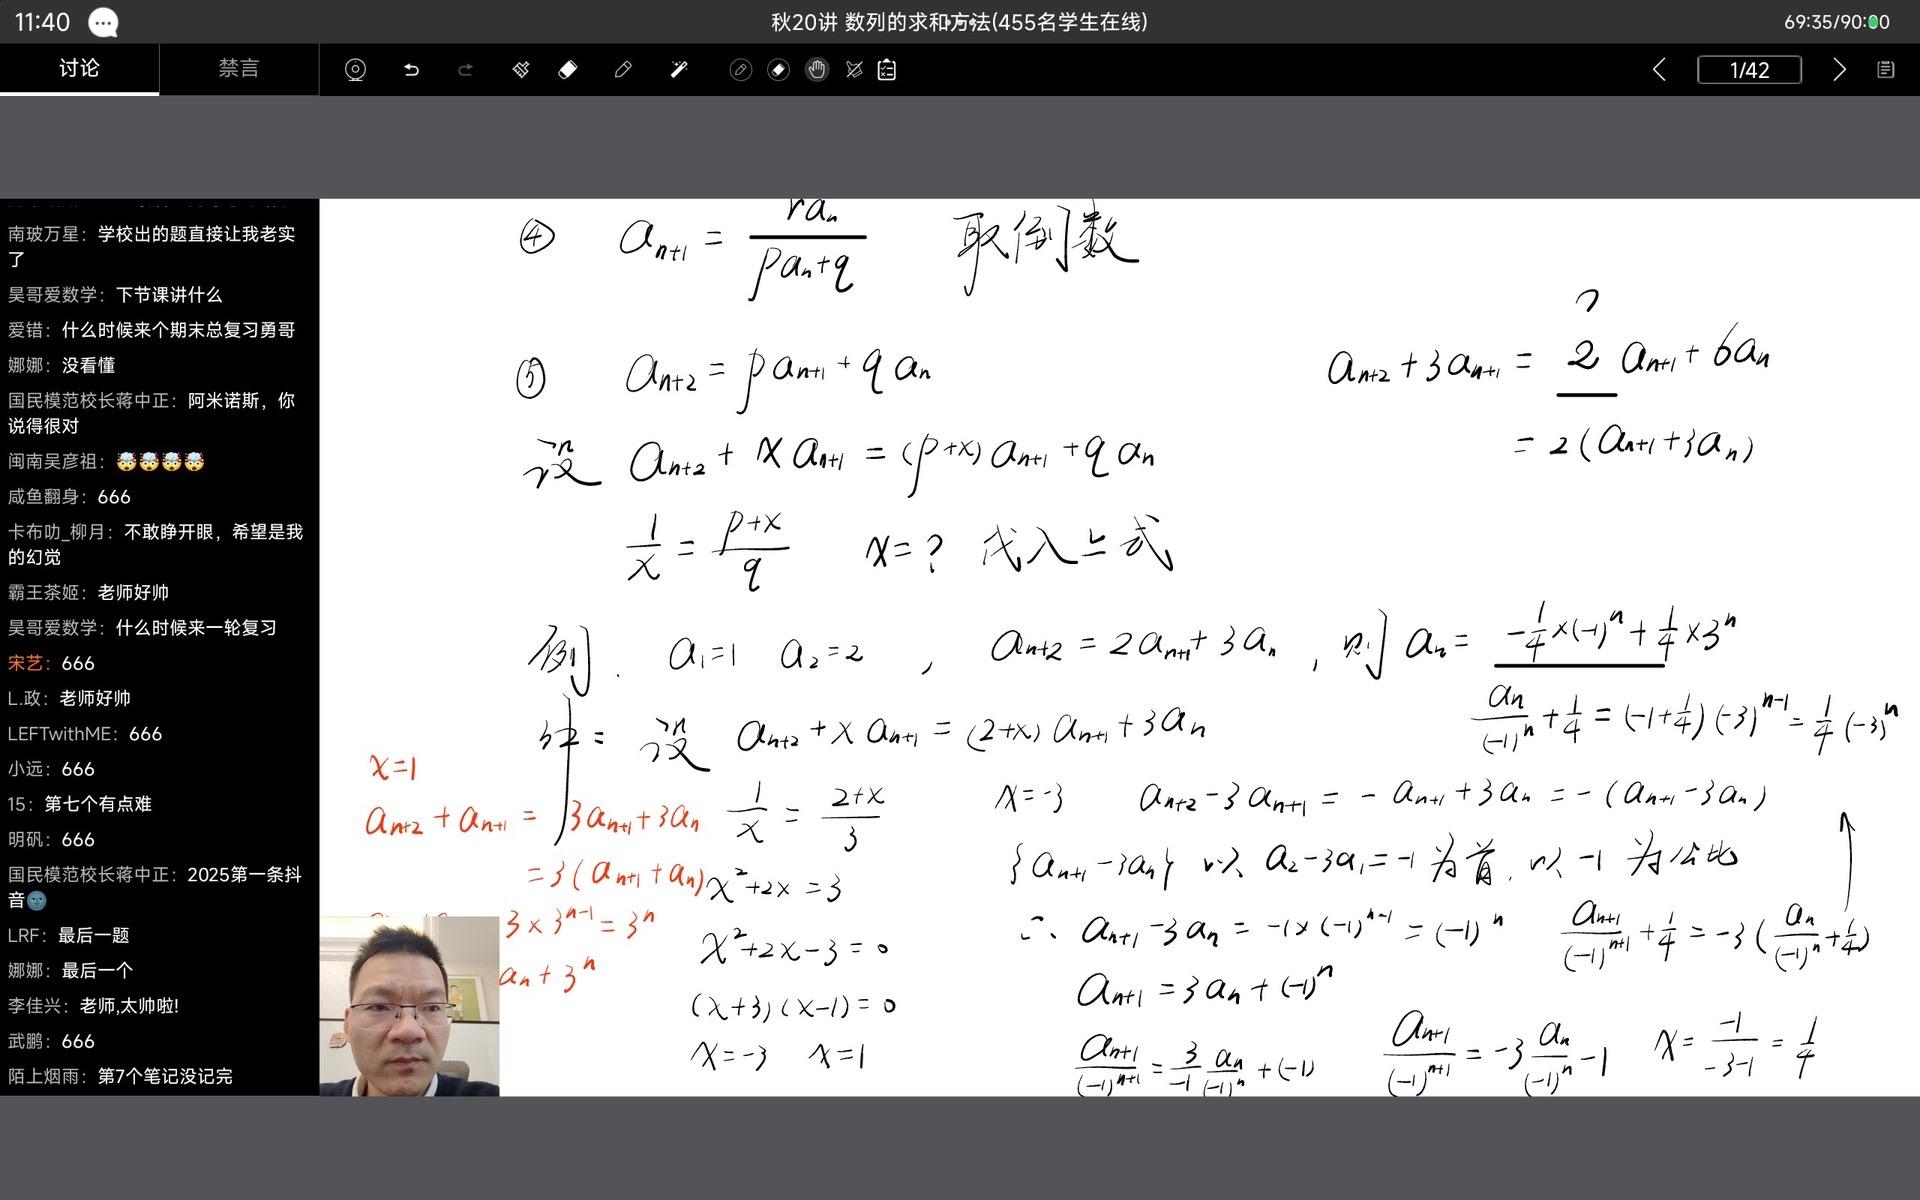 11:40
秋20讲 数列的求和方法(455名学生在线)
69:35/90:00
讨论
禁言
1/42
南玻万星：学校出的题直接让我老实
了
昊哥爱数学：下节课讲什么
爱错：什么时候来个期末总复习勇哥
娜娜：没看懂
国民模范校长蒋中正：阿米诺斯，你
说得很对
闽南吴彦祖：🤯🤯🤯🤯
咸鱼翻身：666
卡布叻_柳月：不敢睁开眼，希望是我
的幻觉
霸王茶姬：老师好帅
昊哥爱数学：什么时候来一轮复习
宋艺：666
L.政：老师好帅
LEFTwithME：666
小远：666
15：第七个有点难
明矾：666
国民模范校长蒋中正：2025第一条抖
音🌚
LRF：最后一题
娜娜：最后一个
李佳兴：老师,太帅啦!
武鹏：666
陌上烟雨：第7个笔记没记完
④ aₙ₊₁ = raₙ/(paₙ+q) 取倒数
⑤ aₙ₊₂ = paₙ₊₁ + qaₙ
设 aₙ₊₂ + xaₙ₊₁ = (p+x)aₙ₊₁ + qaₙ
1/x = (p+x)/q x=? 代入上式
?
aₙ₊₂ + 3aₙ₊₁ = 2 aₙ₊₁ + 6aₙ
= 2(aₙ₊₁ + 3aₙ)
例. a₁=1 a₂=2 , aₙ₊₂ = 2aₙ₊₁ + 3aₙ , 则 aₙ = -1/4×(-1)ⁿ + 1/4×3ⁿ
设 aₙ₊₂ + xaₙ₊₁ = (2+x)aₙ₊₁ + 3aₙ
1/x = (2+x)/3
x²+2x = 3
x²+2x-3 = 0
(x+3)(x-1) = 0
x=-3 x=1
x=1
aₙ₊₂ + aₙ₊₁ = 3aₙ₊₁ + 3aₙ
= 3(aₙ₊₁ + aₙ)
3×3ⁿ⁻¹ = 3ⁿ
aₙ + 3ⁿ
x=-3 aₙ₊₂ - 3aₙ₊₁ = -aₙ₊₁ + 3aₙ = -(aₙ₊₁ - 3aₙ)
{aₙ₊₁ - 3aₙ} 以 a₂-3a₁=-1 为首, 以 -1 为公比
∴ aₙ₊₁ - 3aₙ = -1×(-1)ⁿ⁻¹ = (-1)ⁿ
aₙ₊₁ = 3aₙ + (-1)ⁿ
aₙ₊₁/(-1)ⁿ⁺¹ = 3/-1 aₙ/(-1)ⁿ + (-1)
aₙ₊₁/(-1)ⁿ⁺¹ = -3 aₙ/(-1)ⁿ - 1
x = -1/(-3-1) = 1/4
aₙ₊₁/(-1)ⁿ⁺¹ + 1/4 = -3(aₙ/(-1)ⁿ + 1/4)
aₙ/(-1)ⁿ + 1/4 = (-1+1/4)(-3)ⁿ⁻¹ = 1/4(-3)ⁿ